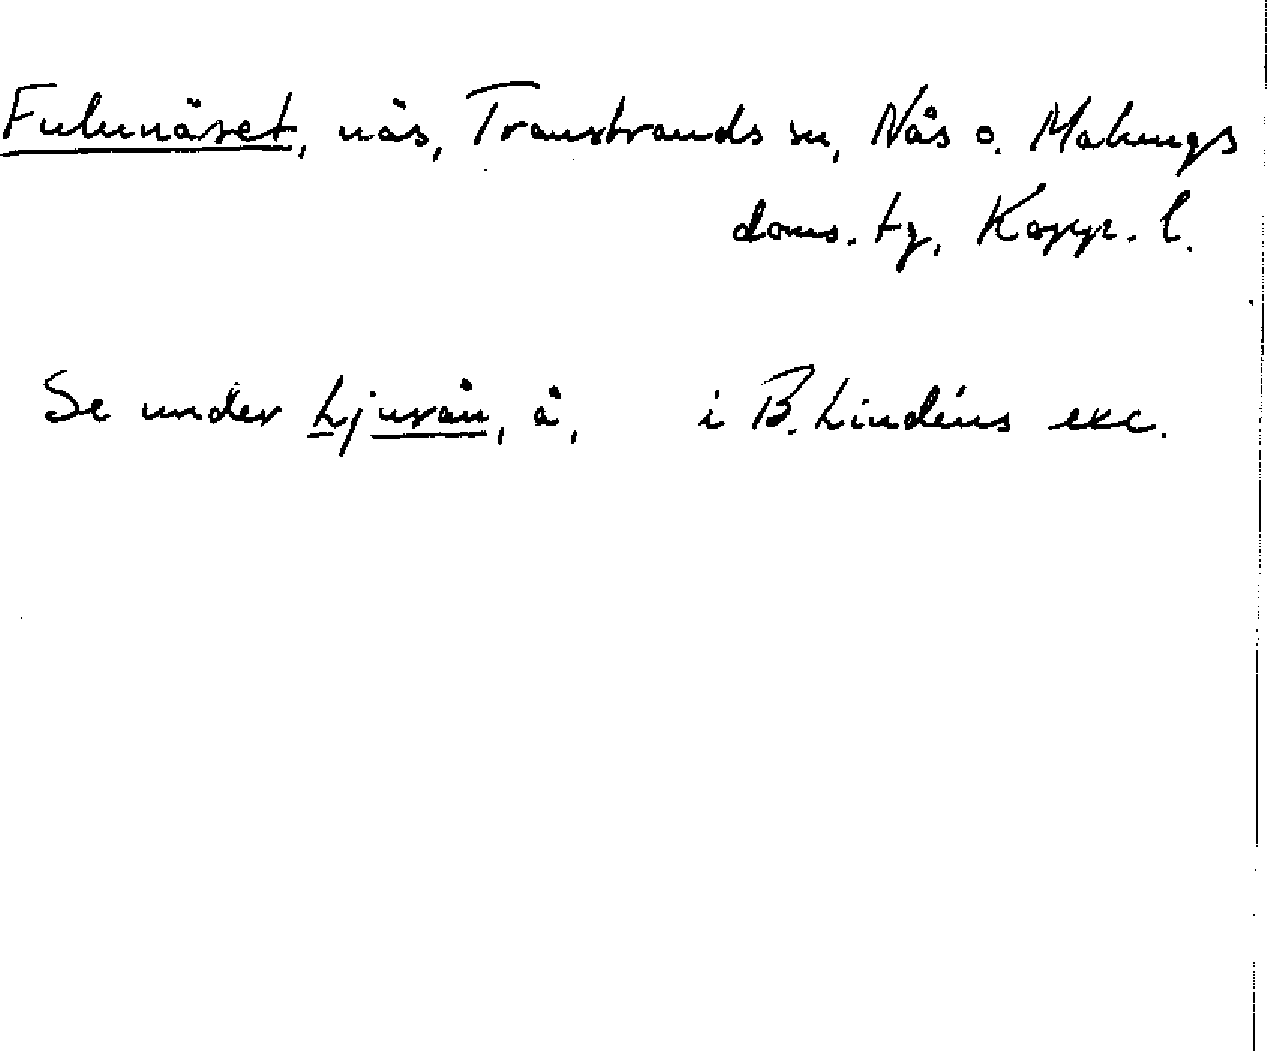 Fulunäset, näs, Transtrands sn, Nås o. Malungs
doms. tg, Kopp. l.
Se under Ljurån, å, i B. Lindéns exc.